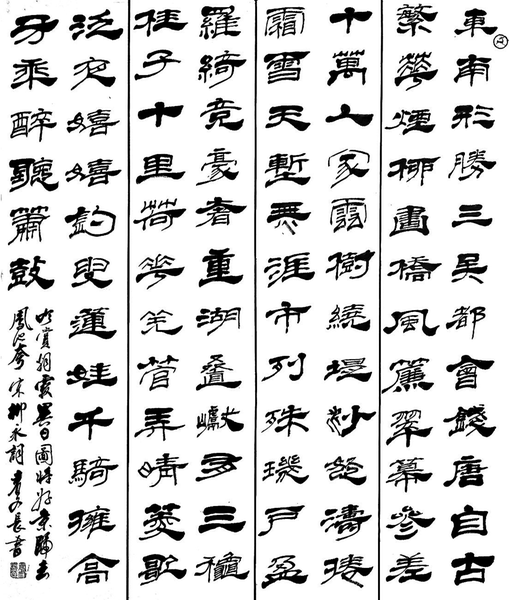 東南形勝三吳都會錢唐自古
繁華煙柳畫橋風簾翠幕參差
十萬人家雲樹繞堤沙怒濤捲
霜雪天塹無涯市列珠璣戶盈
羅綺竟豪奢重湖疊巘多三穐
桂子十里荷花羌管弄晴菱歌
泛夜嬉嬉釣叟蓮娃千騎擁高
牙乘醉聽簫鼓
吟賞烟霞異日圖將好景歸去
鳳池夸 宋柳永詞 長書